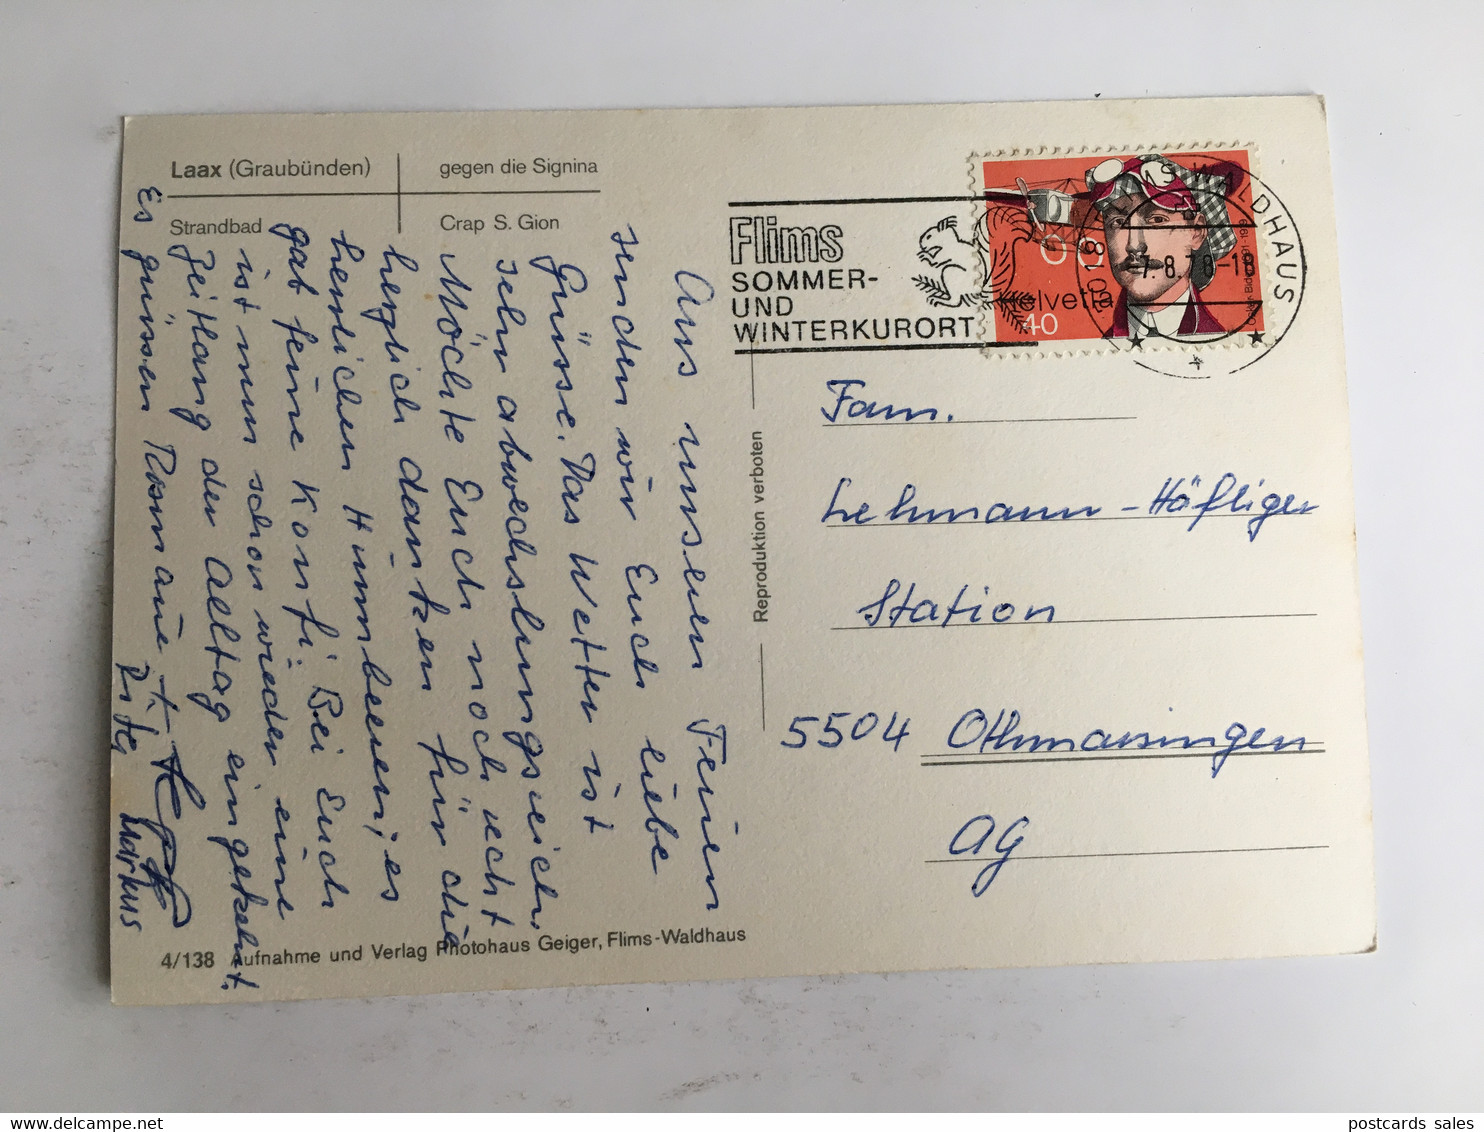 Laax (Graubünden)
gegen die Signina
Strandbad
Crap S. Gion
Aus unseren Ferien
senden wir Euch liebe
Grüsse. Das Wetter ist
sehr abwechslungsreich.
Möchte Euch noch recht
herzlich danken für die
herrlichen Himbeeren, es
gab feine Konfi. Bei Euch
ist nun schon wieder eine
Zeitlang der Alltag eingekehrt.
Es grüssen Rosmarie +
Rita
Markus
4/138 Aufnahme und Verlag Photohaus Geiger, Flims-Waldhaus
Reproduktion verboten
Flims
SOMMER-
UND
WINTERKURORT
FLIMS WALDHAUS
7018
-7.8.78-18
Helvetia
40
Oskar Bider 1891-1919
Fam.
Lehmann-Häfliger
Station
5504 Othmarsingen
AG
postcards sales